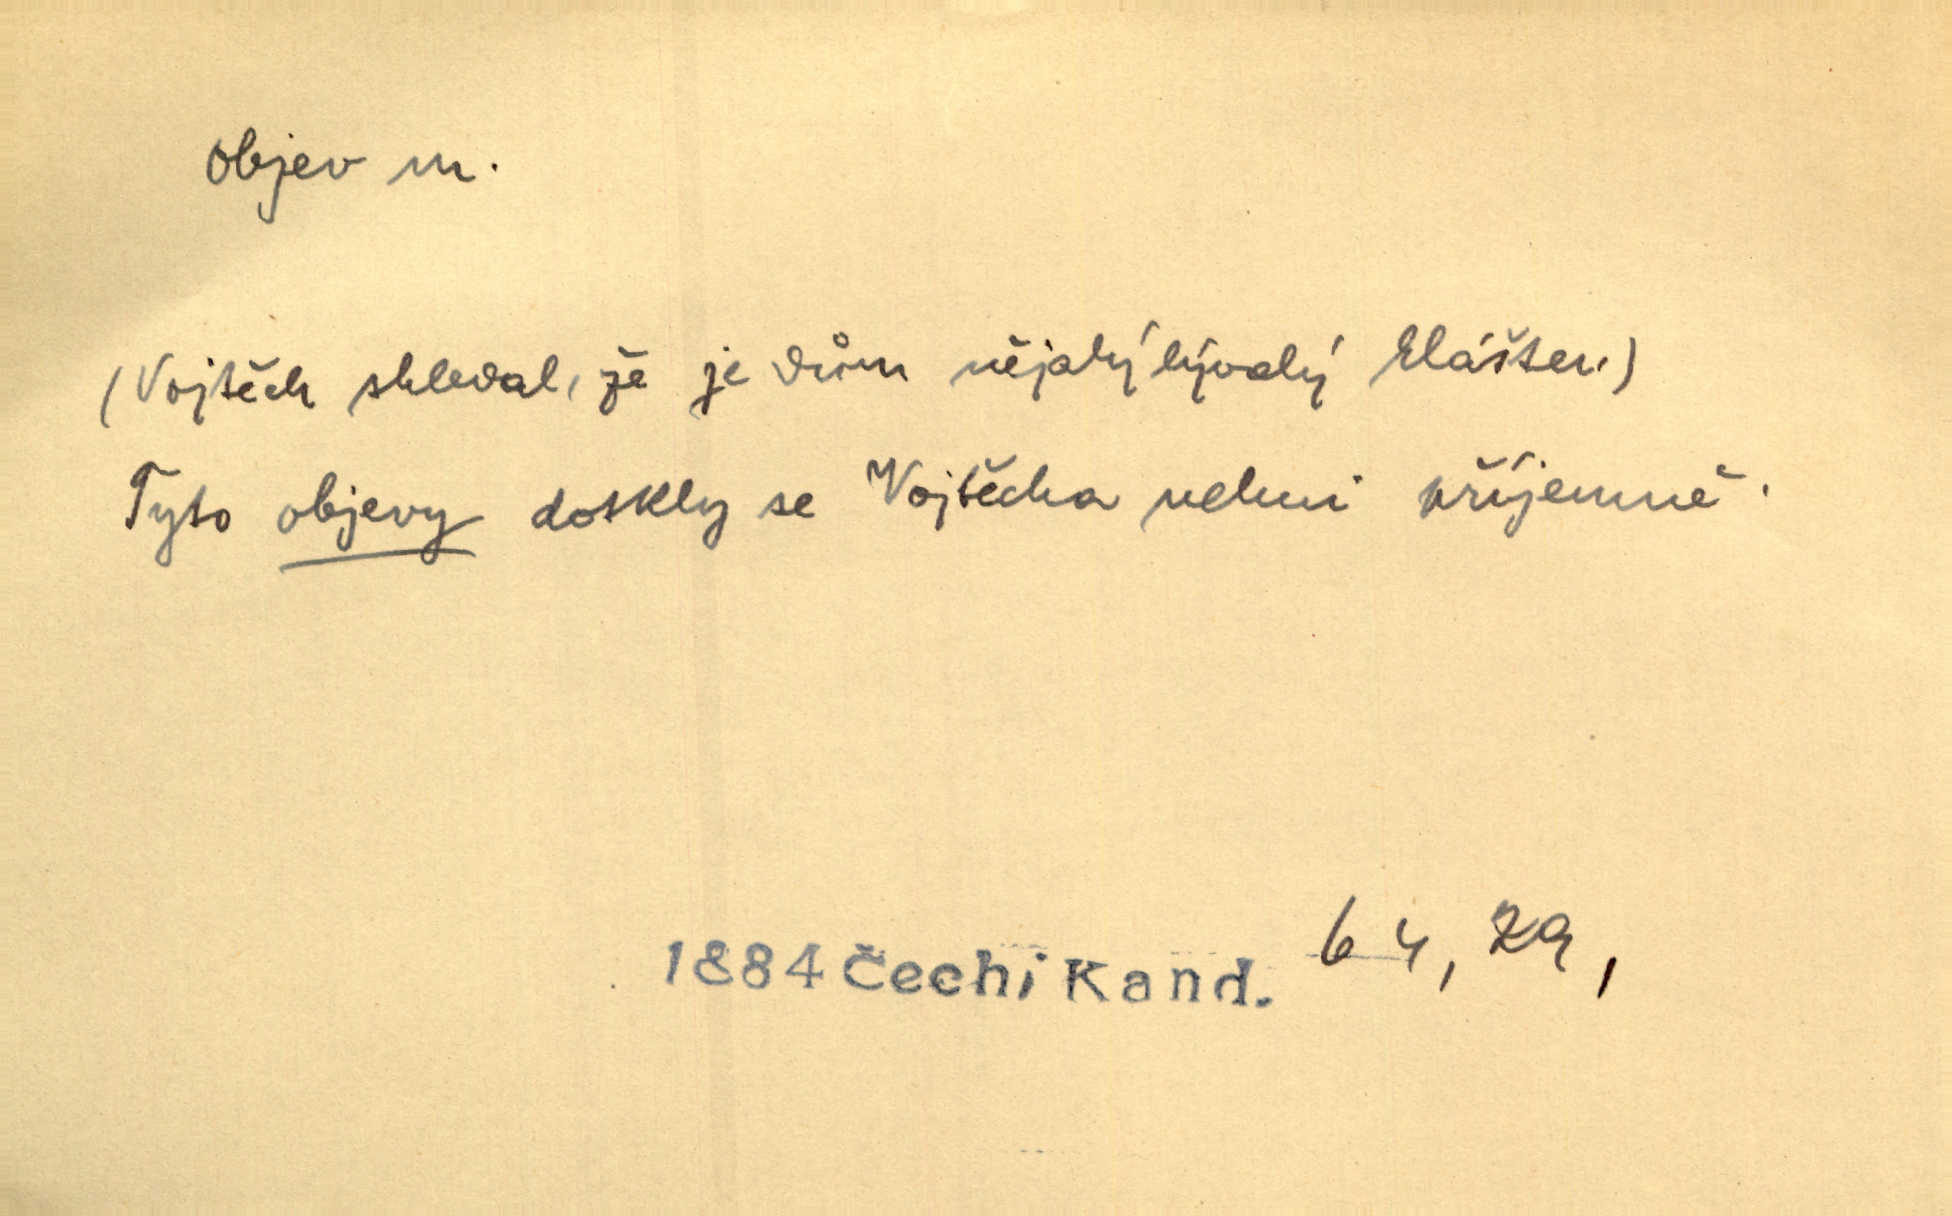 Objev m.
(Vojtěch shledal, že je dům nějaký bývalý klášter.)
Tyto objevy dotkly se Vojtěcha velmi příjemně.
1884 Čech i Kand. 64, 29,